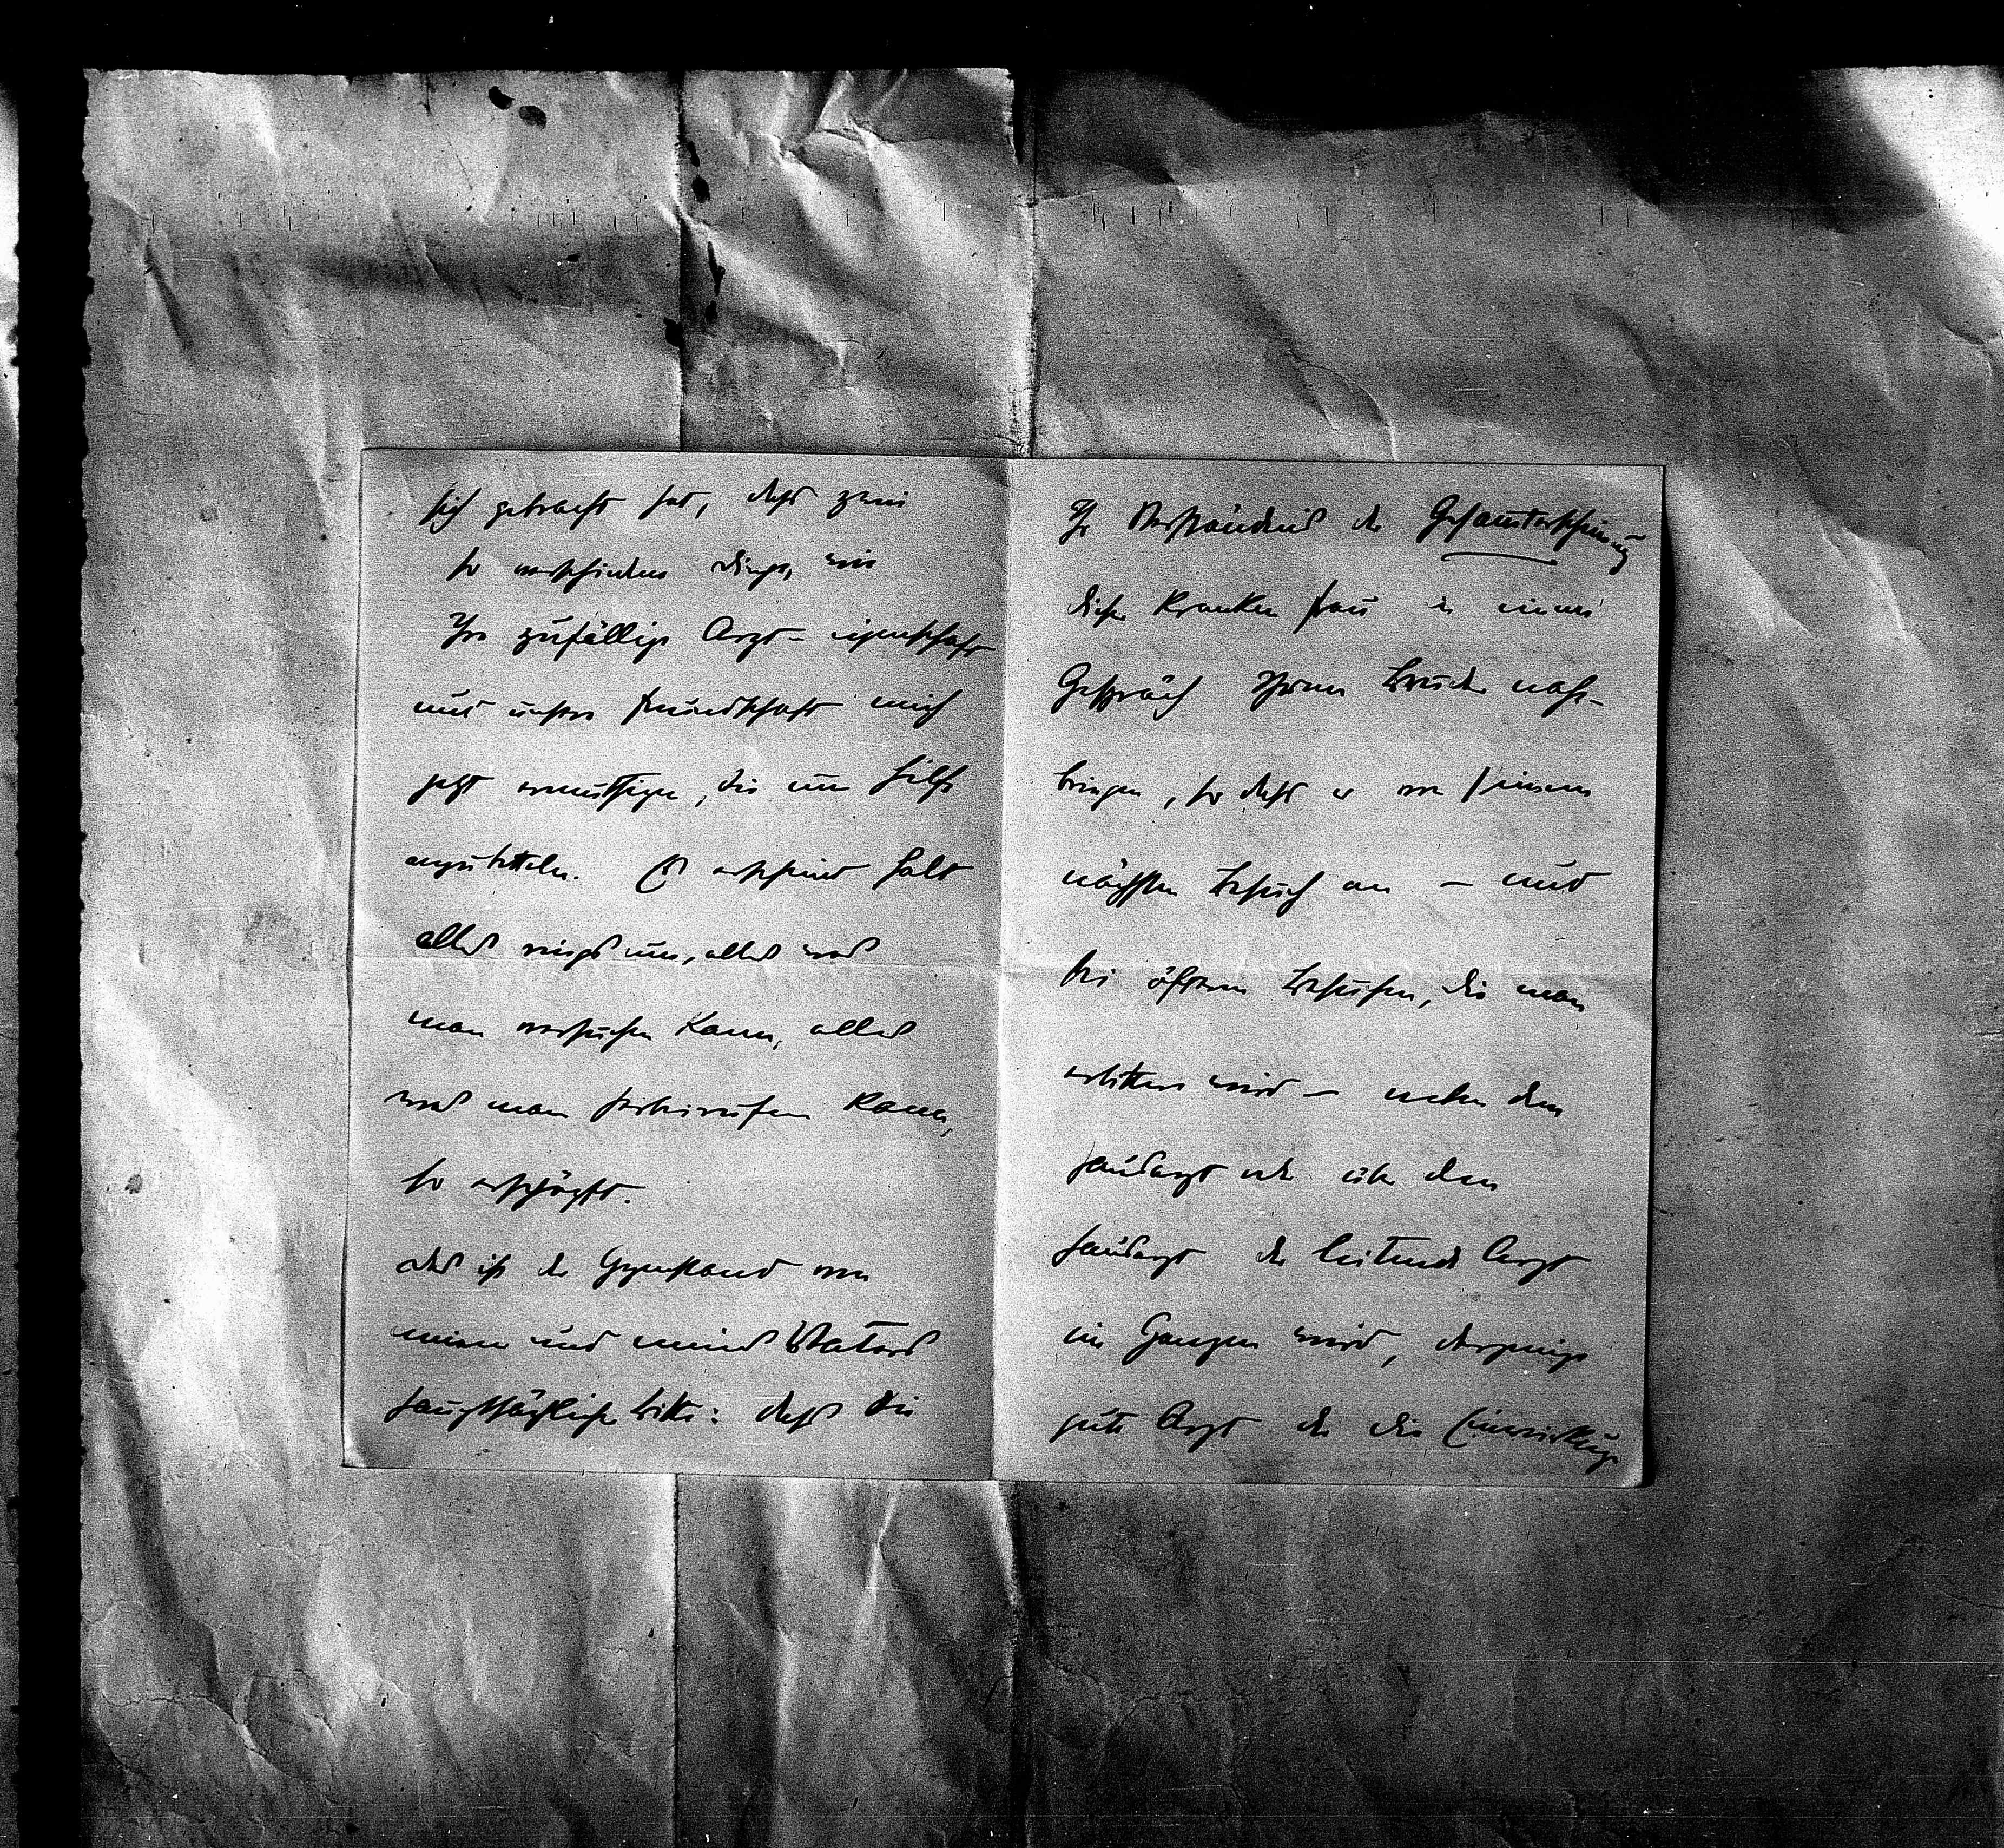 sich gebracht hat, dass zwei
so verschiedene Dinge, wie
Ihre zufällige Arzt-eigenschaft
und unsere Freundschaft mich
jetzt ermuthigen, Sie um Hilfe
anzubetteln. Es erscheint halt
alles rings um, alles was
man versuchen kann, alles
was man herbeirufen kann,
so erschöpft.
Das ist der Gegenstand von
meiner und meines Vaters
hauptsächlicher Bitte: dass Sie
Ihr Verständnis der Gesamterscheinung
dieser kranken Frau in einem
Gespräch Ihrem Bruder nahe-
bringen, so dass er von seinem
nächsten Besuch an – und
bei öfteren Besuchen, die man
erbitten wird – neben dem
Hausarzt oder über dem
Hausarzt der leitende Arzt
im Ganzen wird, derjenige
gute Arzt der die Einwirkung